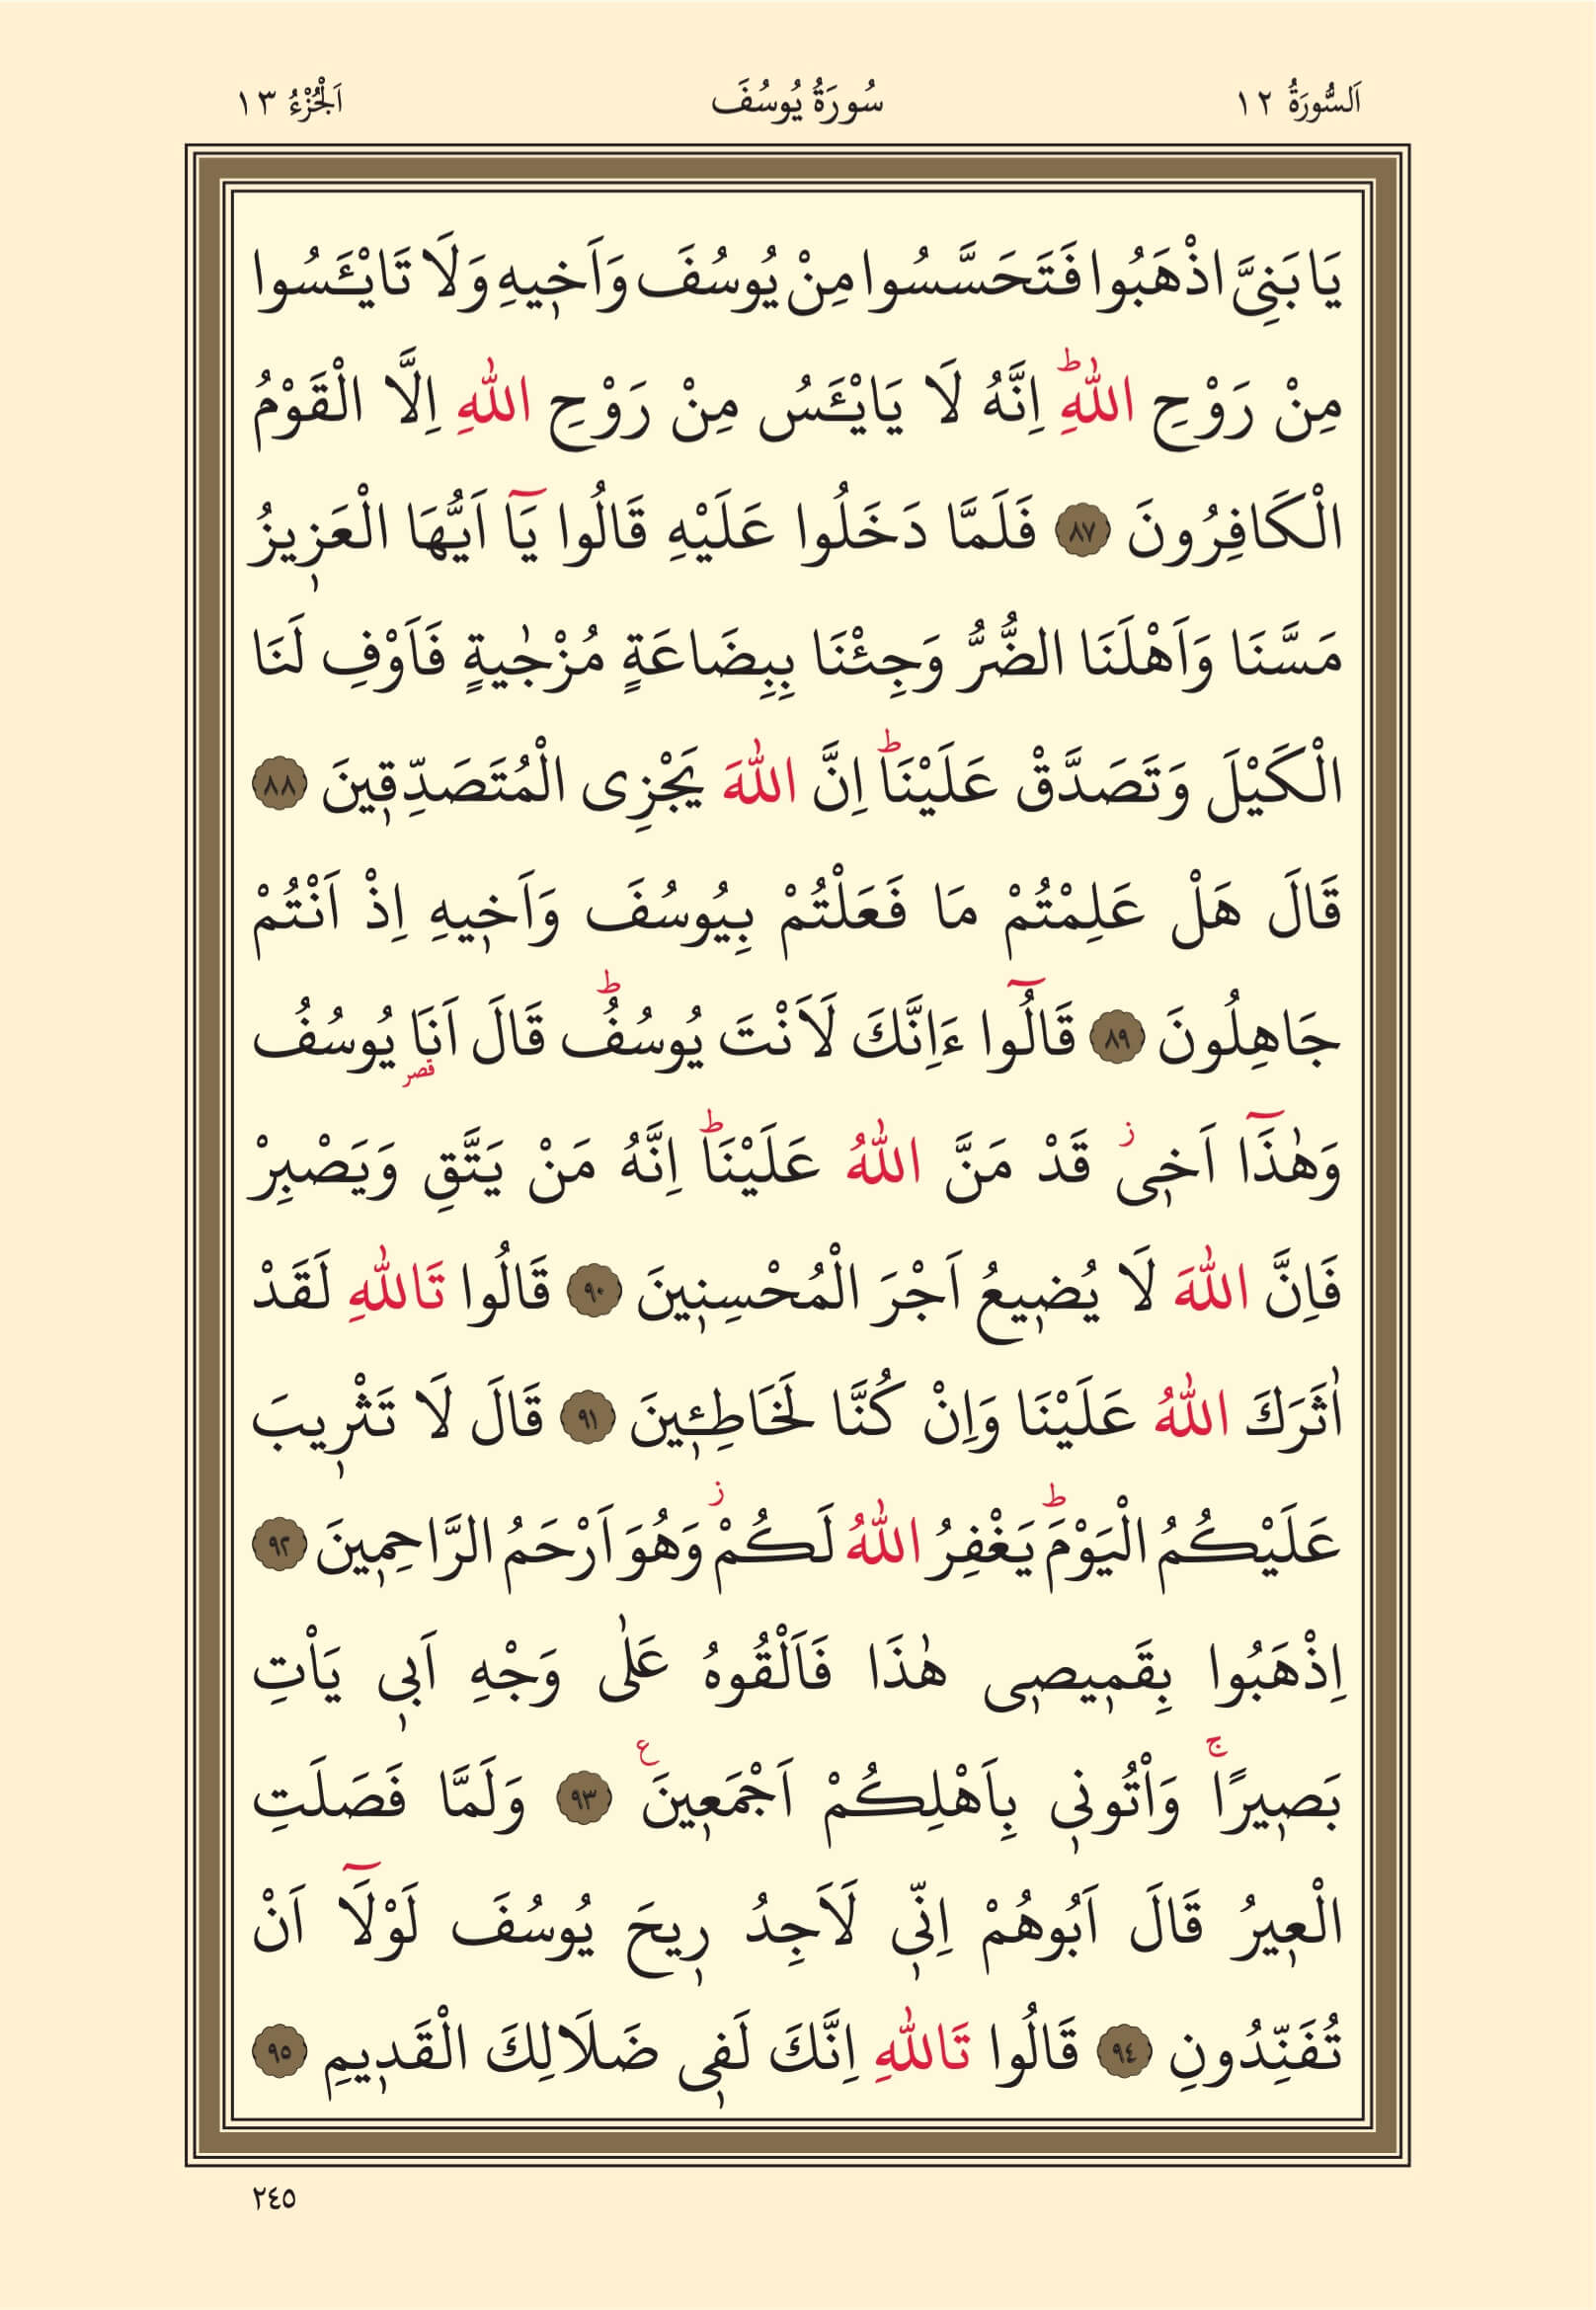 اَلسُّورَةُ ١٢ سُورَةُ يُوسُفَ اَلْجُزْءُ ١٣
يَا بَنِيَّ اذْهَبُوا فَتَحَسَّسُوا مِنْ يُوسُفَ وَاَخ۪يهِ وَلَا تَايْـَٔسُوا
مِنْ رَوْحِ اللّٰهِۜ اِنَّهُ لَا يَايْـَٔسُ مِنْ رَوْحِ اللّٰهِ اِلَّا الْقَوْمُ
الْكَافِرُونَ ﴿٨٧﴾ فَلَمَّا دَخَلُوا عَلَيْهِ قَالُوا يَٓا اَيُّهَا الْعَز۪يزُ
مَسَّنَا وَاَهْلَنَا الضُّرُّ وَجِئْنَا بِبِضَاعَةٍ مُزْجٰيةٍ فَاَوْفِ لَنَا
الْكَيْلَ وَتَصَدَّقْ عَلَيْنَاۜ اِنَّ اللّٰهَ يَجْزِى الْمُتَصَدِّق۪ينَ ﴿٨٨﴾
قَالَ هَلْ عَلِمْتُمْ مَا فَعَلْتُمْ بِيُوسُفَ وَاَخ۪يهِ اِذْ اَنْتُمْ
جَاهِلُونَ ﴿٨٩﴾ قَالُٓوا ءَاِنَّكَ لَاَنْتَ يُوسُفُۜ قَالَ اَنَا۬ يُوسُفُ
وَهٰذَٓا اَخ۪يۘ قَدْ مَنَّ اللّٰهُ عَلَيْنَاۜ اِنَّهُ مَنْ يَتَّقِ وَيَصْبِرْ
فَاِنَّ اللّٰهَ لَا يُض۪يعُ اَجْرَ الْمُحْسِن۪ينَ ﴿٩٠﴾ قَالُوا تَاللّٰهِ لَقَدْ
اٰثَرَكَ اللّٰهُ عَلَيْنَا وَاِنْ كُنَّا لَخَاطِـ۪ٔينَ ﴿٩١﴾ قَالَ لَا تَثْر۪يبَ
عَلَيْكُمُ الْيَوْمَۜ يَغْفِرُ اللّٰهُ لَكُمْۘ وَهُوَ اَرْحَمُ الرَّاحِم۪ينَ ﴿٩٢﴾
اِذْهَبُوا بِقَم۪يص۪ي هٰذَا فَاَلْقُوهُ عَلٰى وَجْهِ اَب۪ي يَأْتِ
بَص۪يرًاۚ وَأْتُون۪ي بِاَهْلِكُمْ اَجْمَع۪ينَ۟ ﴿٩٣﴾ وَلَمَّا فَصَلَتِ
الْع۪يرُ قَالَ اَبُوهُمْ اِنّ۪ي لَاَجِدُ ر۪يحَ يُوسُفَ لَوْلَٓا اَنْ
تُفَنِّدُونِ ﴿٩٤﴾ قَالُوا تَاللّٰهِ اِنَّكَ لَف۪ي ضَلَالِكَ الْقَد۪يمِ ﴿٩٥﴾
٢٤٥